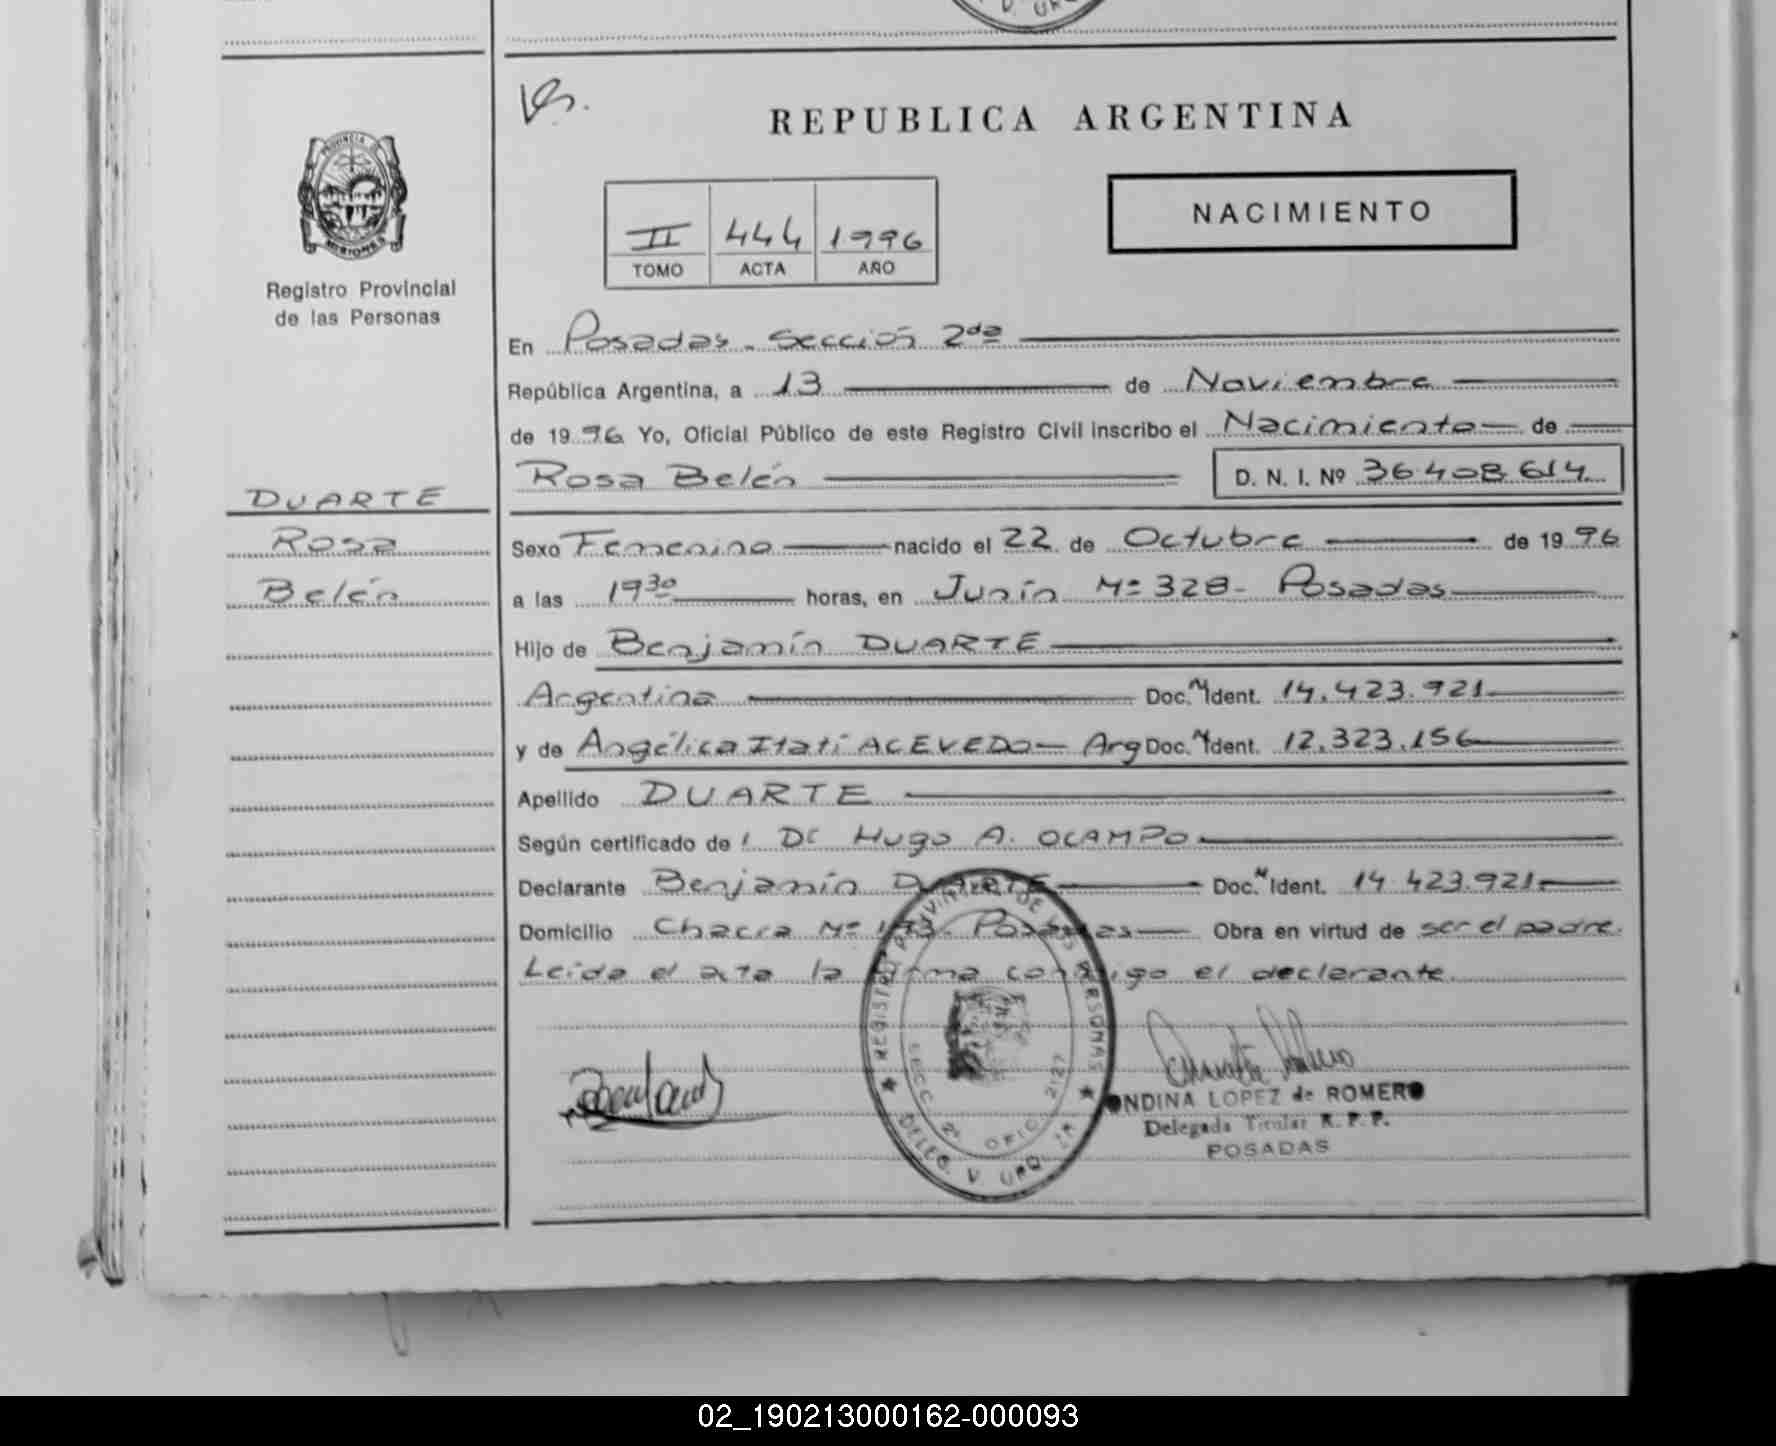 Vs.
REPUBLICA ARGENTINA
PROVINCIA D
MISIONES
Registro Provincial
de las Personas
II 444 1996
TOMO ACTA AÑO
NACIMIENTO
En Posadas - Sección 2da
República Argentina, a 13 de Noviembre
de 1996 Yo, Oficial Público de este Registro Civil inscribo el Nacimiento de
Rosa Belén D. N. I. Nº 36.408.614
DUARTE
Rosa
Belén
Sexo Femenino nacido el 22 de Octubre de 1996
a las 19 30 horas, en Junín Nº 328 - Posadas
Hijo de Benjamín DUARTE
Argentina Doc. N Ident. 14.423.921
y de Angélica Itatí ACEVEDO - Arg Doc. N Ident. 12.323.156
Apellido DUARTE
Según certificado de l Dr Hugo A. OCAMPO
Declarante Benjamín DUARTE Doc. N Ident. 14.423.921
Domicilio Chacra Nº Posadas Obra en virtud de ser el padre.
Leída el acta la firma conmigo el declarante.
REGISTRO PROVINCIAL DE LAS PERSONAS
SECC 2ª OFIC 2127
DELEG. V. URQUIZA
ONDINA LOPEZ de ROMERO
Delegada Titular R. P. P.
POSADAS
02_190213000162-000093